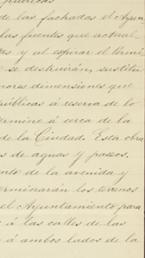 públicas
de las fachadas el Ayun
las fuentes que actual
res, y al espirar el térmi
se destruirán, sustitu
nores dimensiones que
públicas á reserva de lo
termine á cerca de la
de la Ciudad. Esta obra
s de aguas y paseos.
ento de la avenida y
terminarán los terrenos
el Ayuntamiento para
á las calles de las
á ambos lados de la